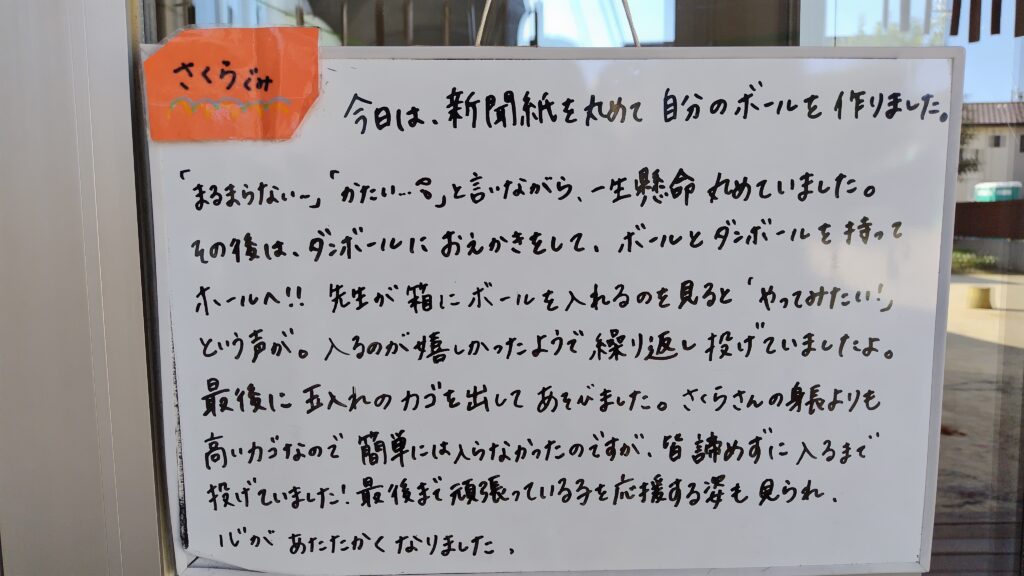 さくらぐみ
今日は、新聞紙を丸めて 自分のボールを 作りました。
「まるまらない〜」「かたい…」と言いながら、一生懸命 丸めていました。
その後は、ダンボールに おえかきをして、ボールと ダンボールを 持って
ホールへ!! 先生が 箱に ボールを 入れるのを 見ると「やってみたい!」
という声が。入るのが 嬉しかったようで 繰り返し 投げていましたよ。
最後に 玉入れの カゴを 出して あそびました。さくらさんの 身長よりも
高いカゴなので 簡単には入らなかったのですが、皆 諦めずに 入るまで
投げていました! 最後まで 頑張っている子を 応援する姿も 見られ、
心が あたたかくなりました。